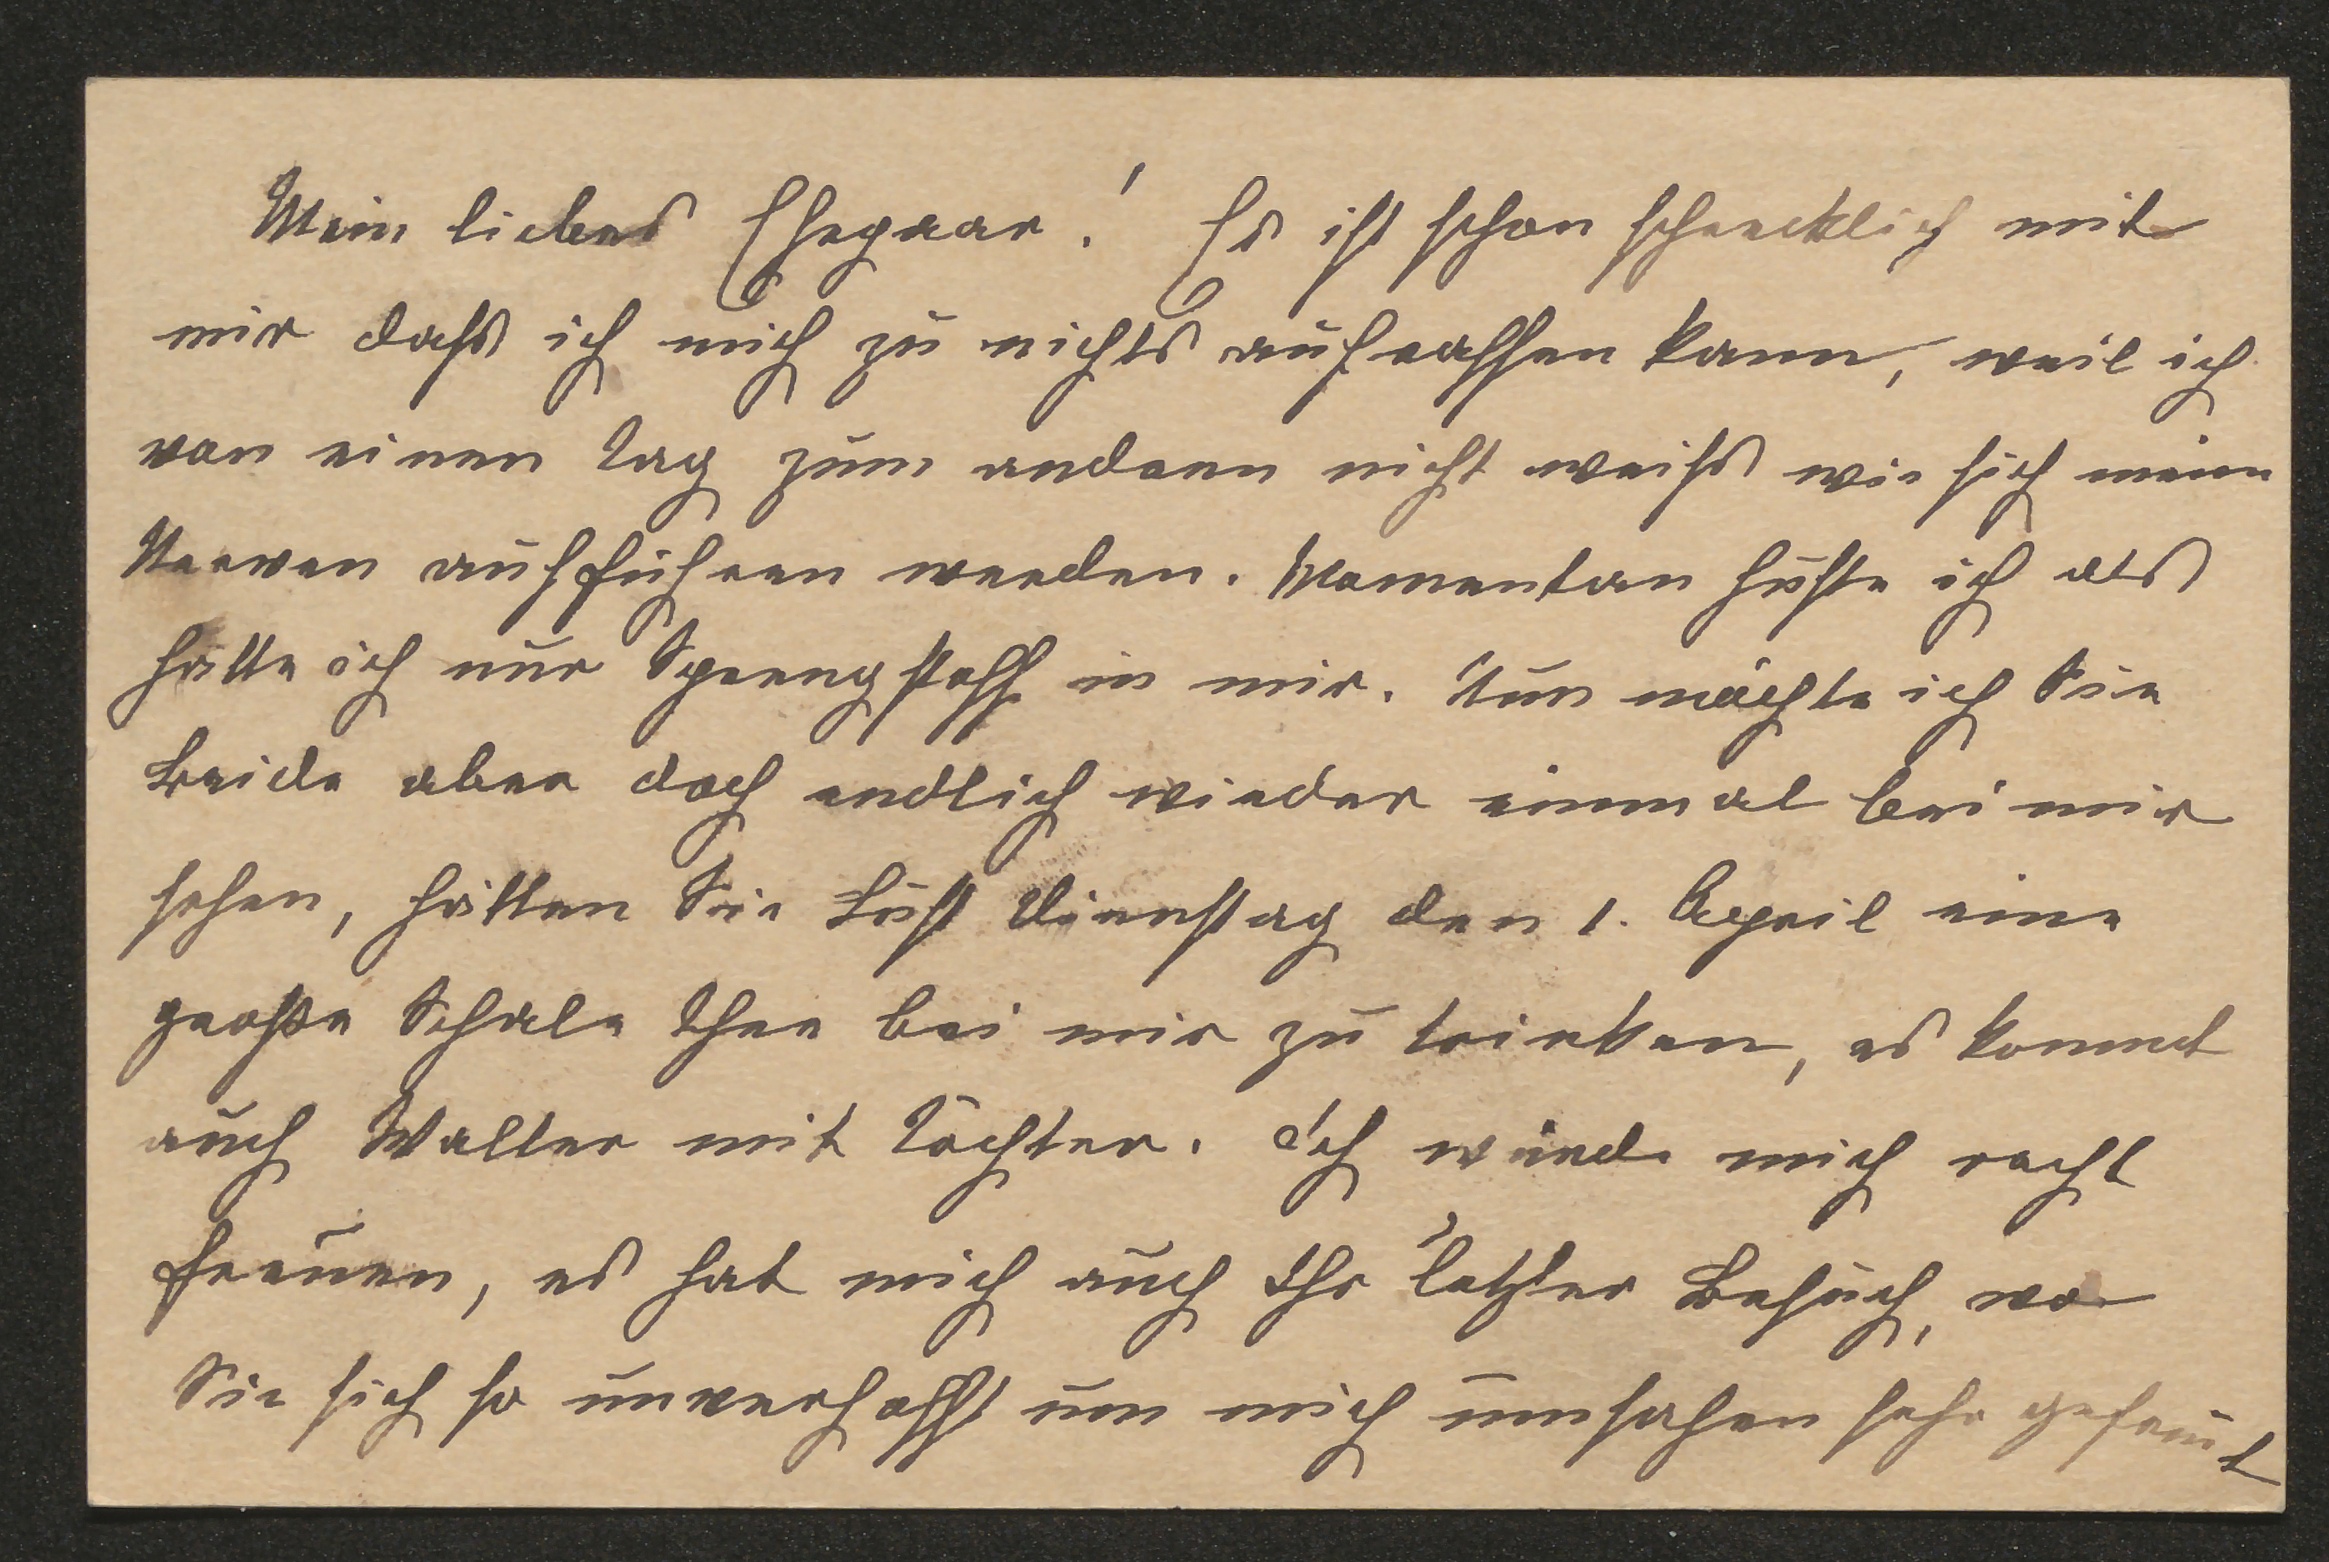 Mein liebes Ehepaar! Es ist schon schrecklich mit
mir dass ich mich zu nichts aufraffen kann, weil ich
von einen Tag zum andern nicht weiss wie sich meine
Nerven aufführen werden. Momentan huste ich als
hätte ich nur Sprengstoff in mir. Nun möchte ich Sie
Beide aber doch endlich wieder einmal bei mir
sehen, hätten Sie Lust Dienstag den 1. April eine
große Schale Thee bei mir zu trinken, es kommt
auch Walter mit Töchter. Ich würde mich recht
freuen, es hat mich auch Ihr letzter Besuch, wo
Sie sich so unverhofft um mich umsahen sehr gefreut